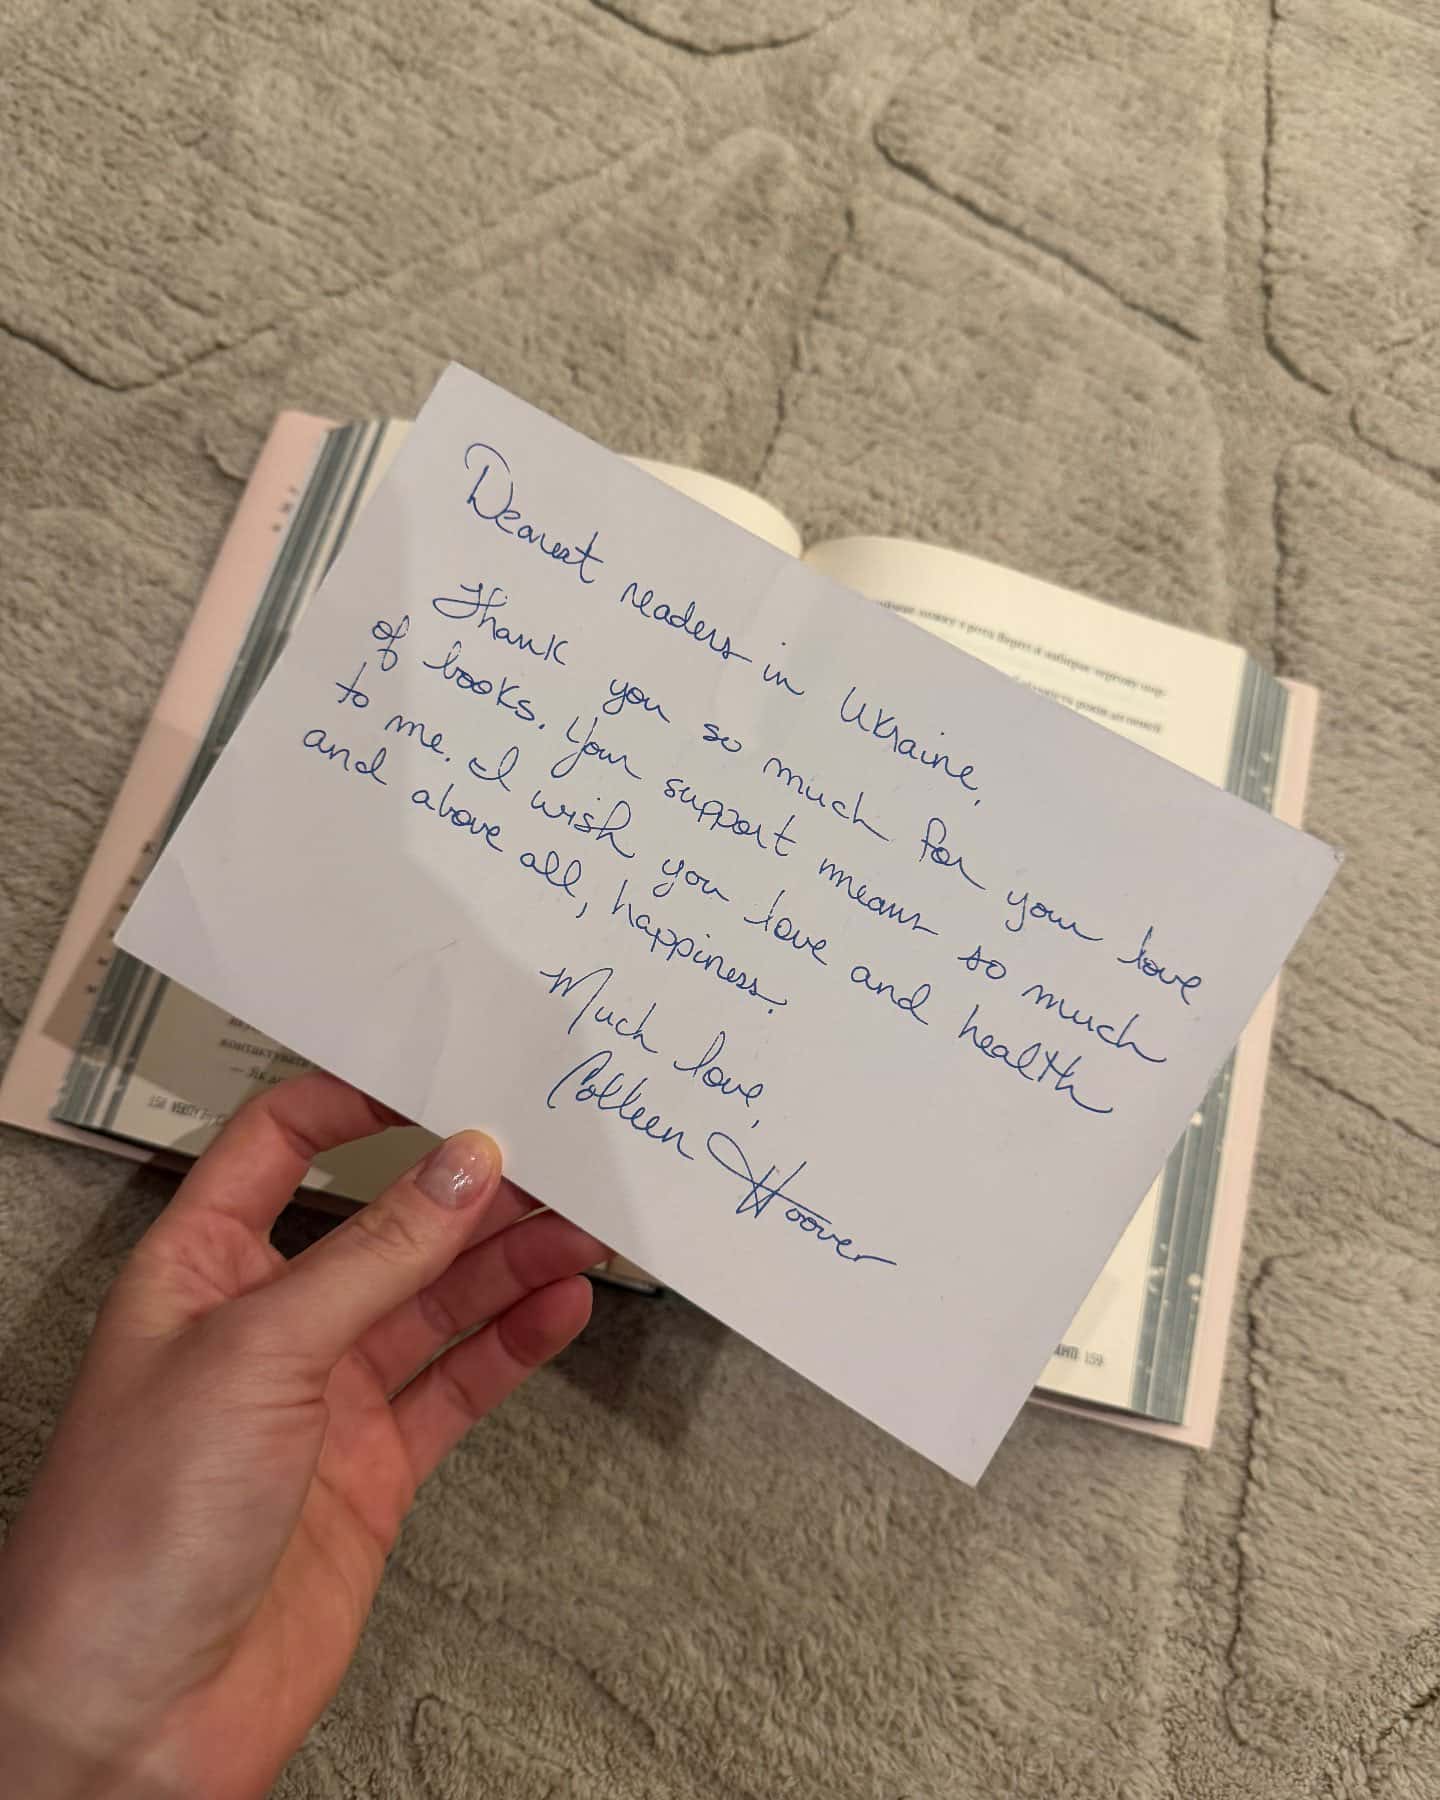 Dearest readers in Ukraine,
Thank you so much for your love
of books. Your support means so much
to me. I wish you love and health
and above all, happiness.
Much love,
Colleen Hoover
159